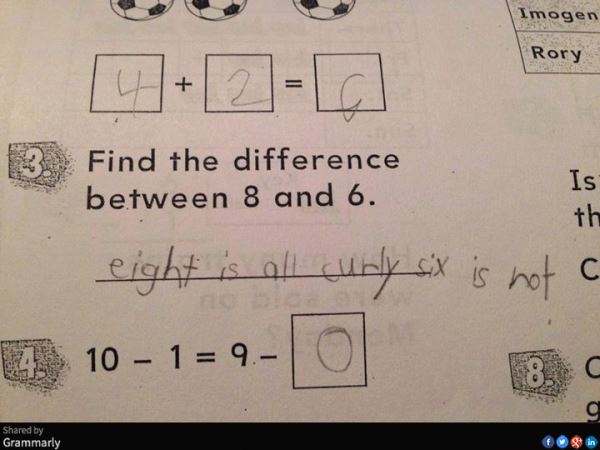 Imogen
Rory
4 + 2 = 6
3. Find the difference
between 8 and 6.
eight is all curly six is not
4. 10 – 1 = 9 – 0
Is
th
C
8. C
g
Shared by
Grammarly